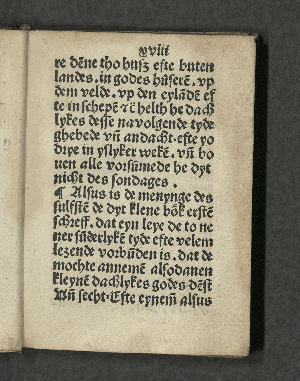 xviii
re dēne tho husz efte buten
landes. in godes hüserē. vp
dem velde. vp den eylādē ef
te in schepē ⁊c̄ helth he dach
lykes desse navolgende tyde
ghebede vn̄ andacht. efte yo
drye in yslyker wekē. vn̄ bo
uen alle vorsümede he dyt
nicht des sondages.
¶ Alsus is de menynge des
sulfstē de dyt klene bök erstē
schreff. dat eyn leye de to ne
ner sūderlykē tyde efte velem
lezende vorbūden is. dat de
mochte annemē alsodanen
kleynē dachlykes godes dēst
Vn̄ secht. Efte eynem̄ alsus